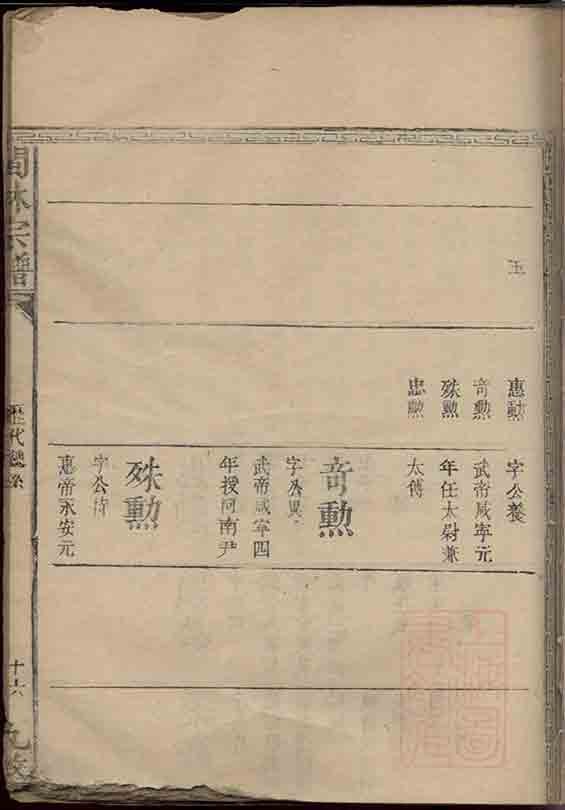 玉
惠勳
奇勳
殊勳
忠勳
字公養
武帝咸寧元
年任太尉兼
太傅
奇勳
字公異
武帝咸寧四
年授河南尹
殊勳
字公待
惠帝永安元
林宗譜
歷代
十六
九